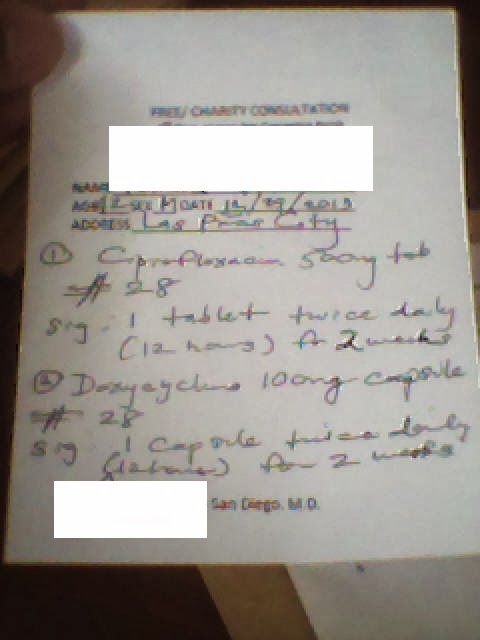 FREE/ CHARITY CONSULTATION
NAME
AGE 12 SEX M DATE 12/29/2013
ADDRESS Las Pinas City
① Ciprofloxacin 500mg tab
# 28
Sig. 1 tablet twice daily
(12 hours) for 2 weeks
② Doxycycline 100mg capsule
# 28
Sig 1 capsule twice daily
(12 hours) for 2 weeks
San Diego, M.D.